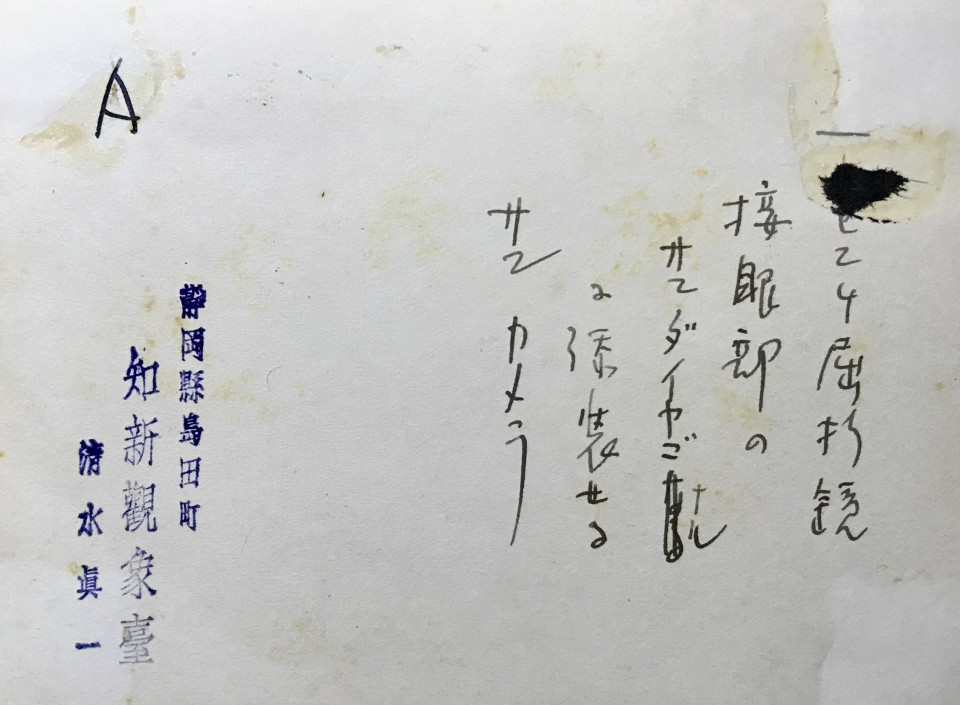 センチ屈折鏡
接眼部の
サンダイヤゴナル
に装せる
サン カメラ
A
靜岡縣島田町
知新觀象臺
清水眞一